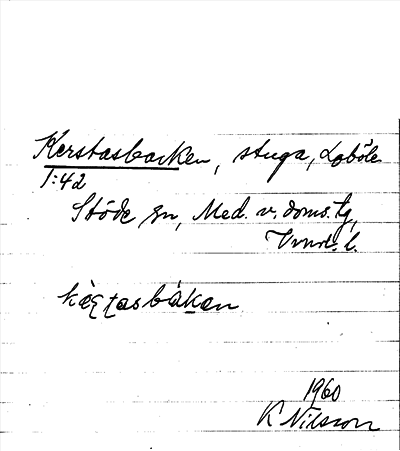 Kerstasbacken, stuga, Loböle
1:42
Stöde sn, Med. v. doms. tg,
Vnrl. l.
kæ̀ʂʈasbàken
1960
K Nilsson